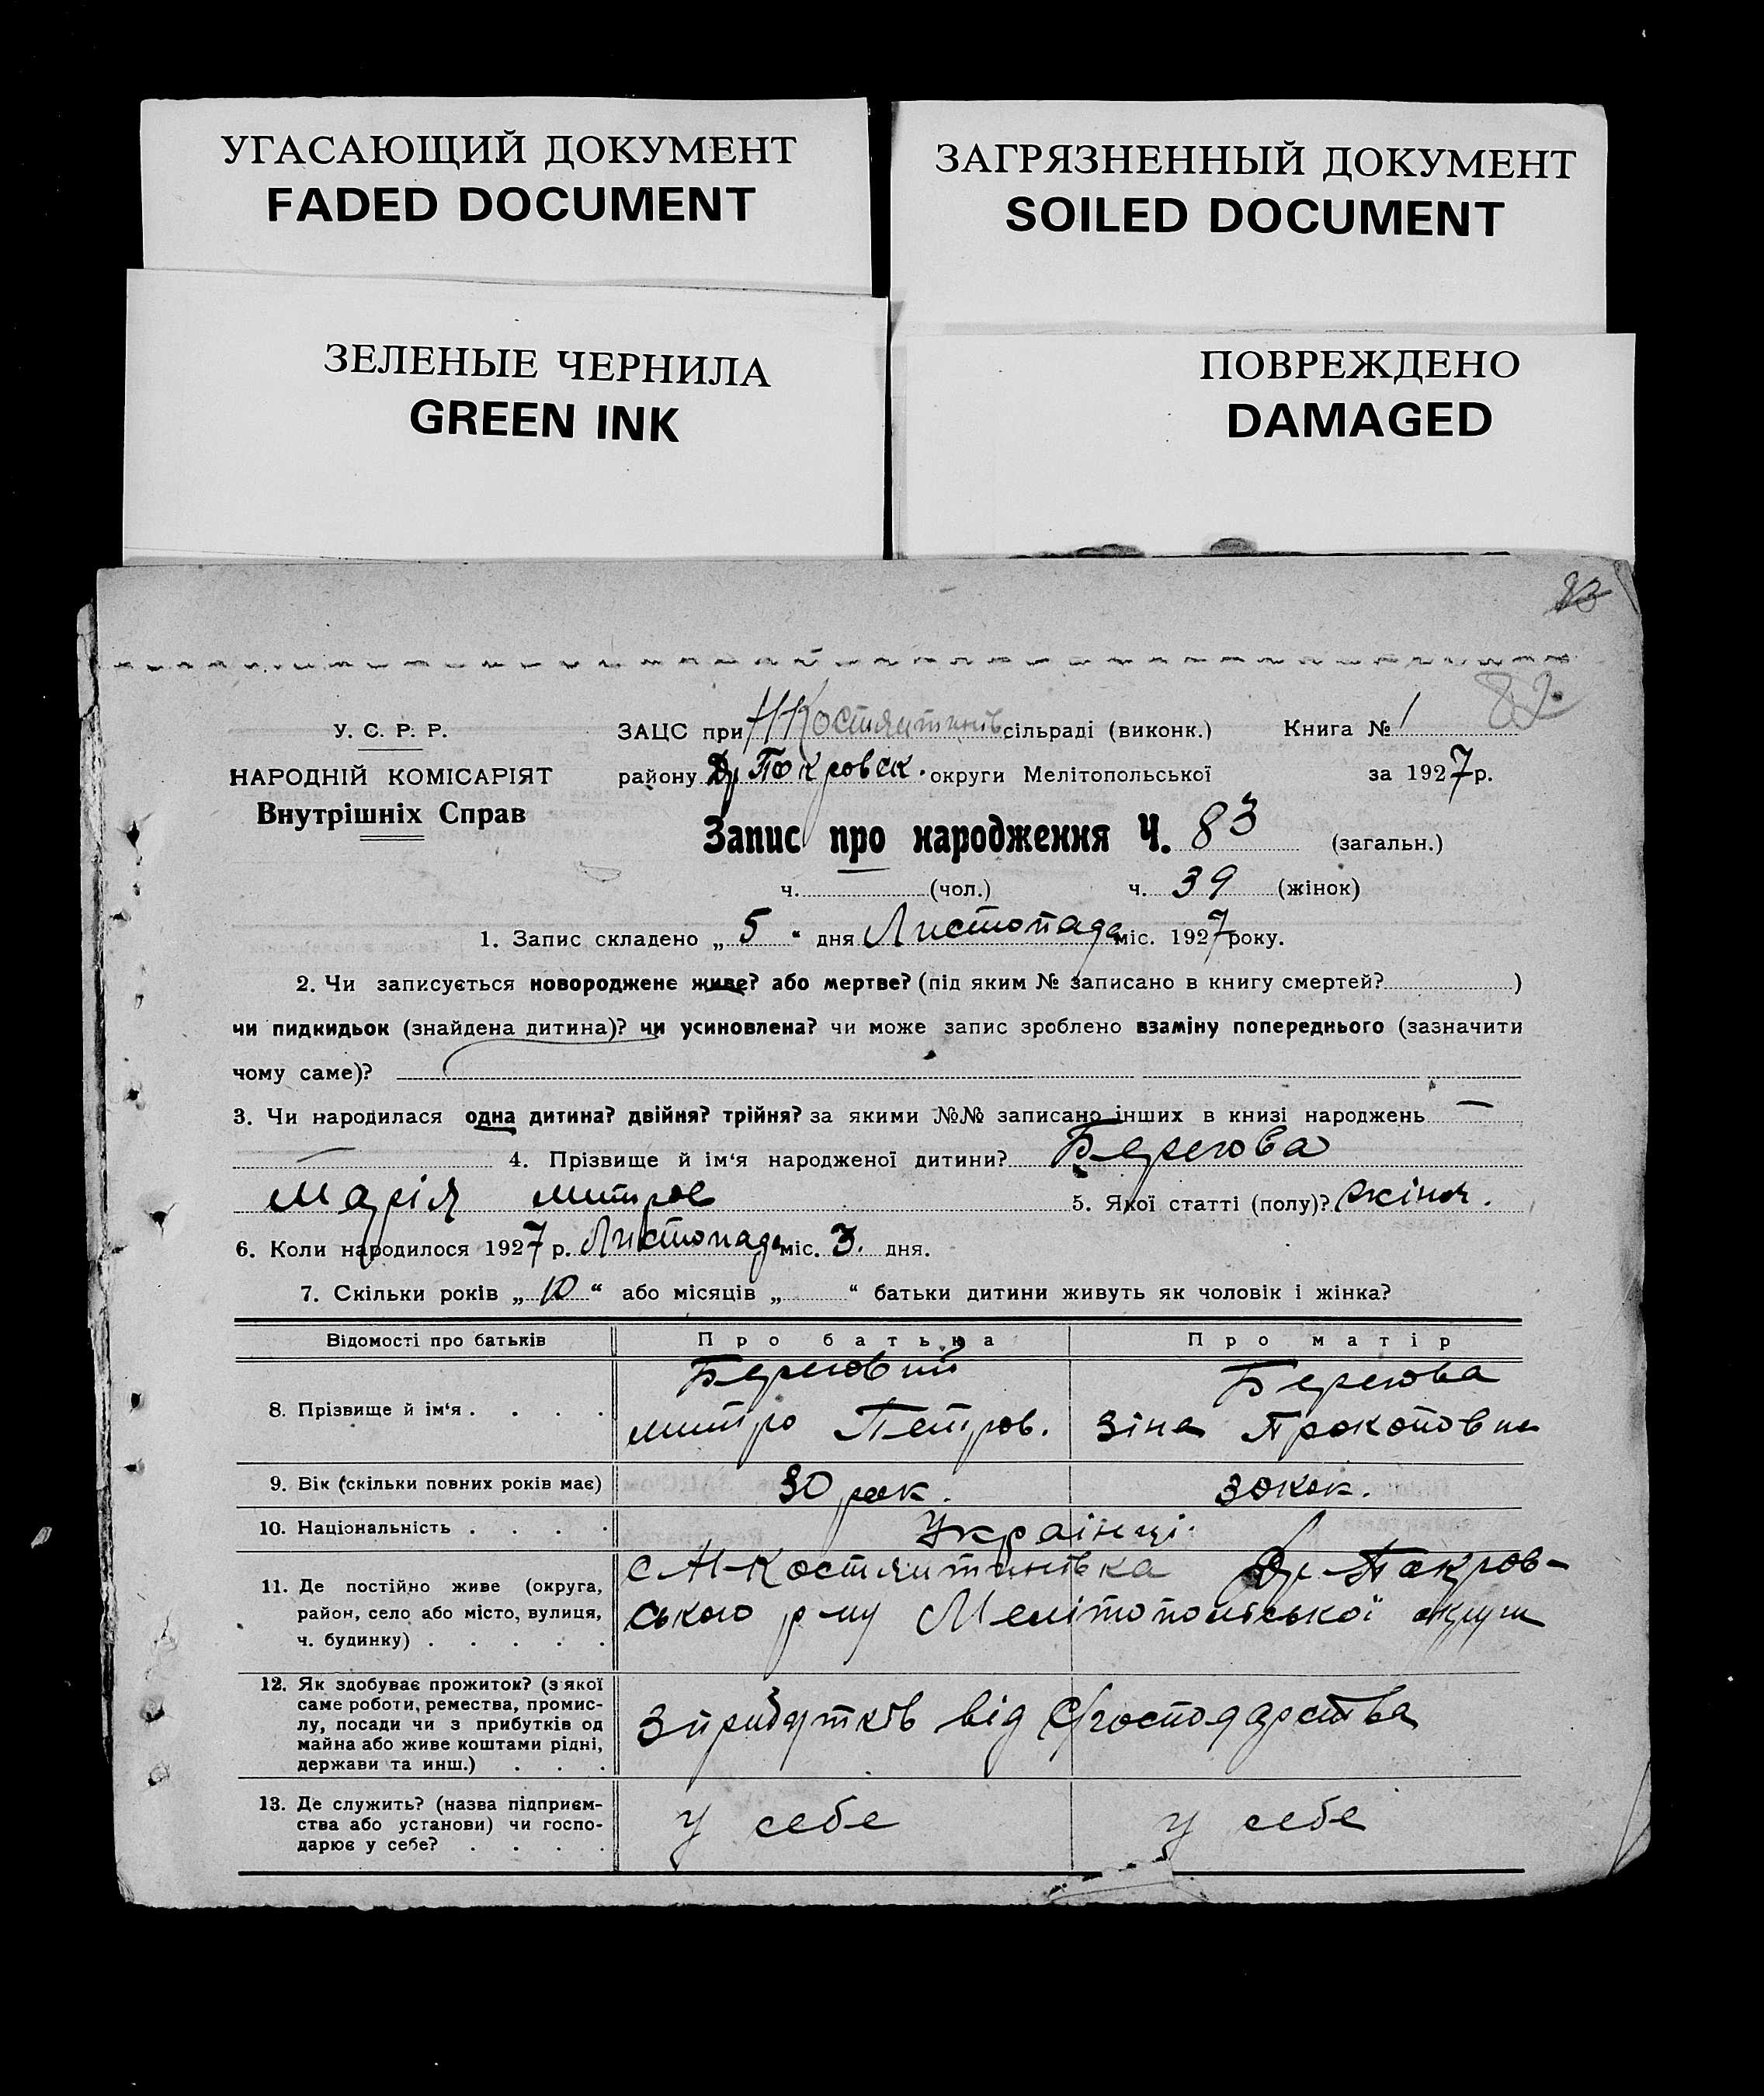 УГАСАЮЩИЙ ДОКУМЕНТ
FADED DOCUMENT
ЗАГРЯЗНЕННЫЙ ДОКУМЕНТ
SOILED DOCUMENT
ЗЕЛЕНЫЕ ЧЕРНИЛА
GREEN INK
ПОВРЕЖДЕНО
DAMAGED
У. С. Р. Р.
НАРОДНІЙ КОМІСАРІЯТ
Внутрішніх Справ
ЗАЦС при сільраді (виконк.) Книга № 1
району Покровск. округи Мелітопольської за 1927 р.
Запис про народження Ч. 83 (загальн.)
ч. (чол.) ч. 39 (жінок)
1. Запис складено „ 5 “ дня Листопада міс. 1927 року.
2. Чи записується новороджене живе? або мертве? (під яким № записано в книгу смертей? )
чи пидкидьок (знайдена дитина)? чи усиновлена? чи може запис зроблено взаміну попереднього (зазначити
чому саме)?
3. Чи народилася одна дитина? двійня? трійня? за якими №№ записано інших в книзі народжень —
— 4. Прізвище й ім‘я народженої дитини? Берегова
Марія Митров 5. Якої статті (полу)? жіноч.
6. Коли народилося 1927 р. Листопада міс. 3. дня.
7. Скільки років „ 10 “ або місяців „ “ батьки дитини живуть як чоловік і жінка?
Відомості про батьків Про батька Про матір
8. Прізвище й ім‘я . . . .
Береговий Берегова
митро Петров. Зіна Прокоповна
9. Вік (скільки повних років має) 30 рок. 30
10. Національність . . . . Українці.
11. Де постійно живе (округа,
район, село або місто, вулиця,
ч. будинку) . . . . .
Костянтинівка Покров-
ського р-ну Мелітопольської округи
12. Як здобуває прожиток? (з якої
саме роботи, ремества, промис-
лу, посади чи з прибутків од
майна або живе коштами рідні,
держави та инш.) . . .
З прибутків від господарства
13. Де служить? (назва підприєм-
ства або установи) чи госпо-
дарює у себе? . . . .
у себе у себе